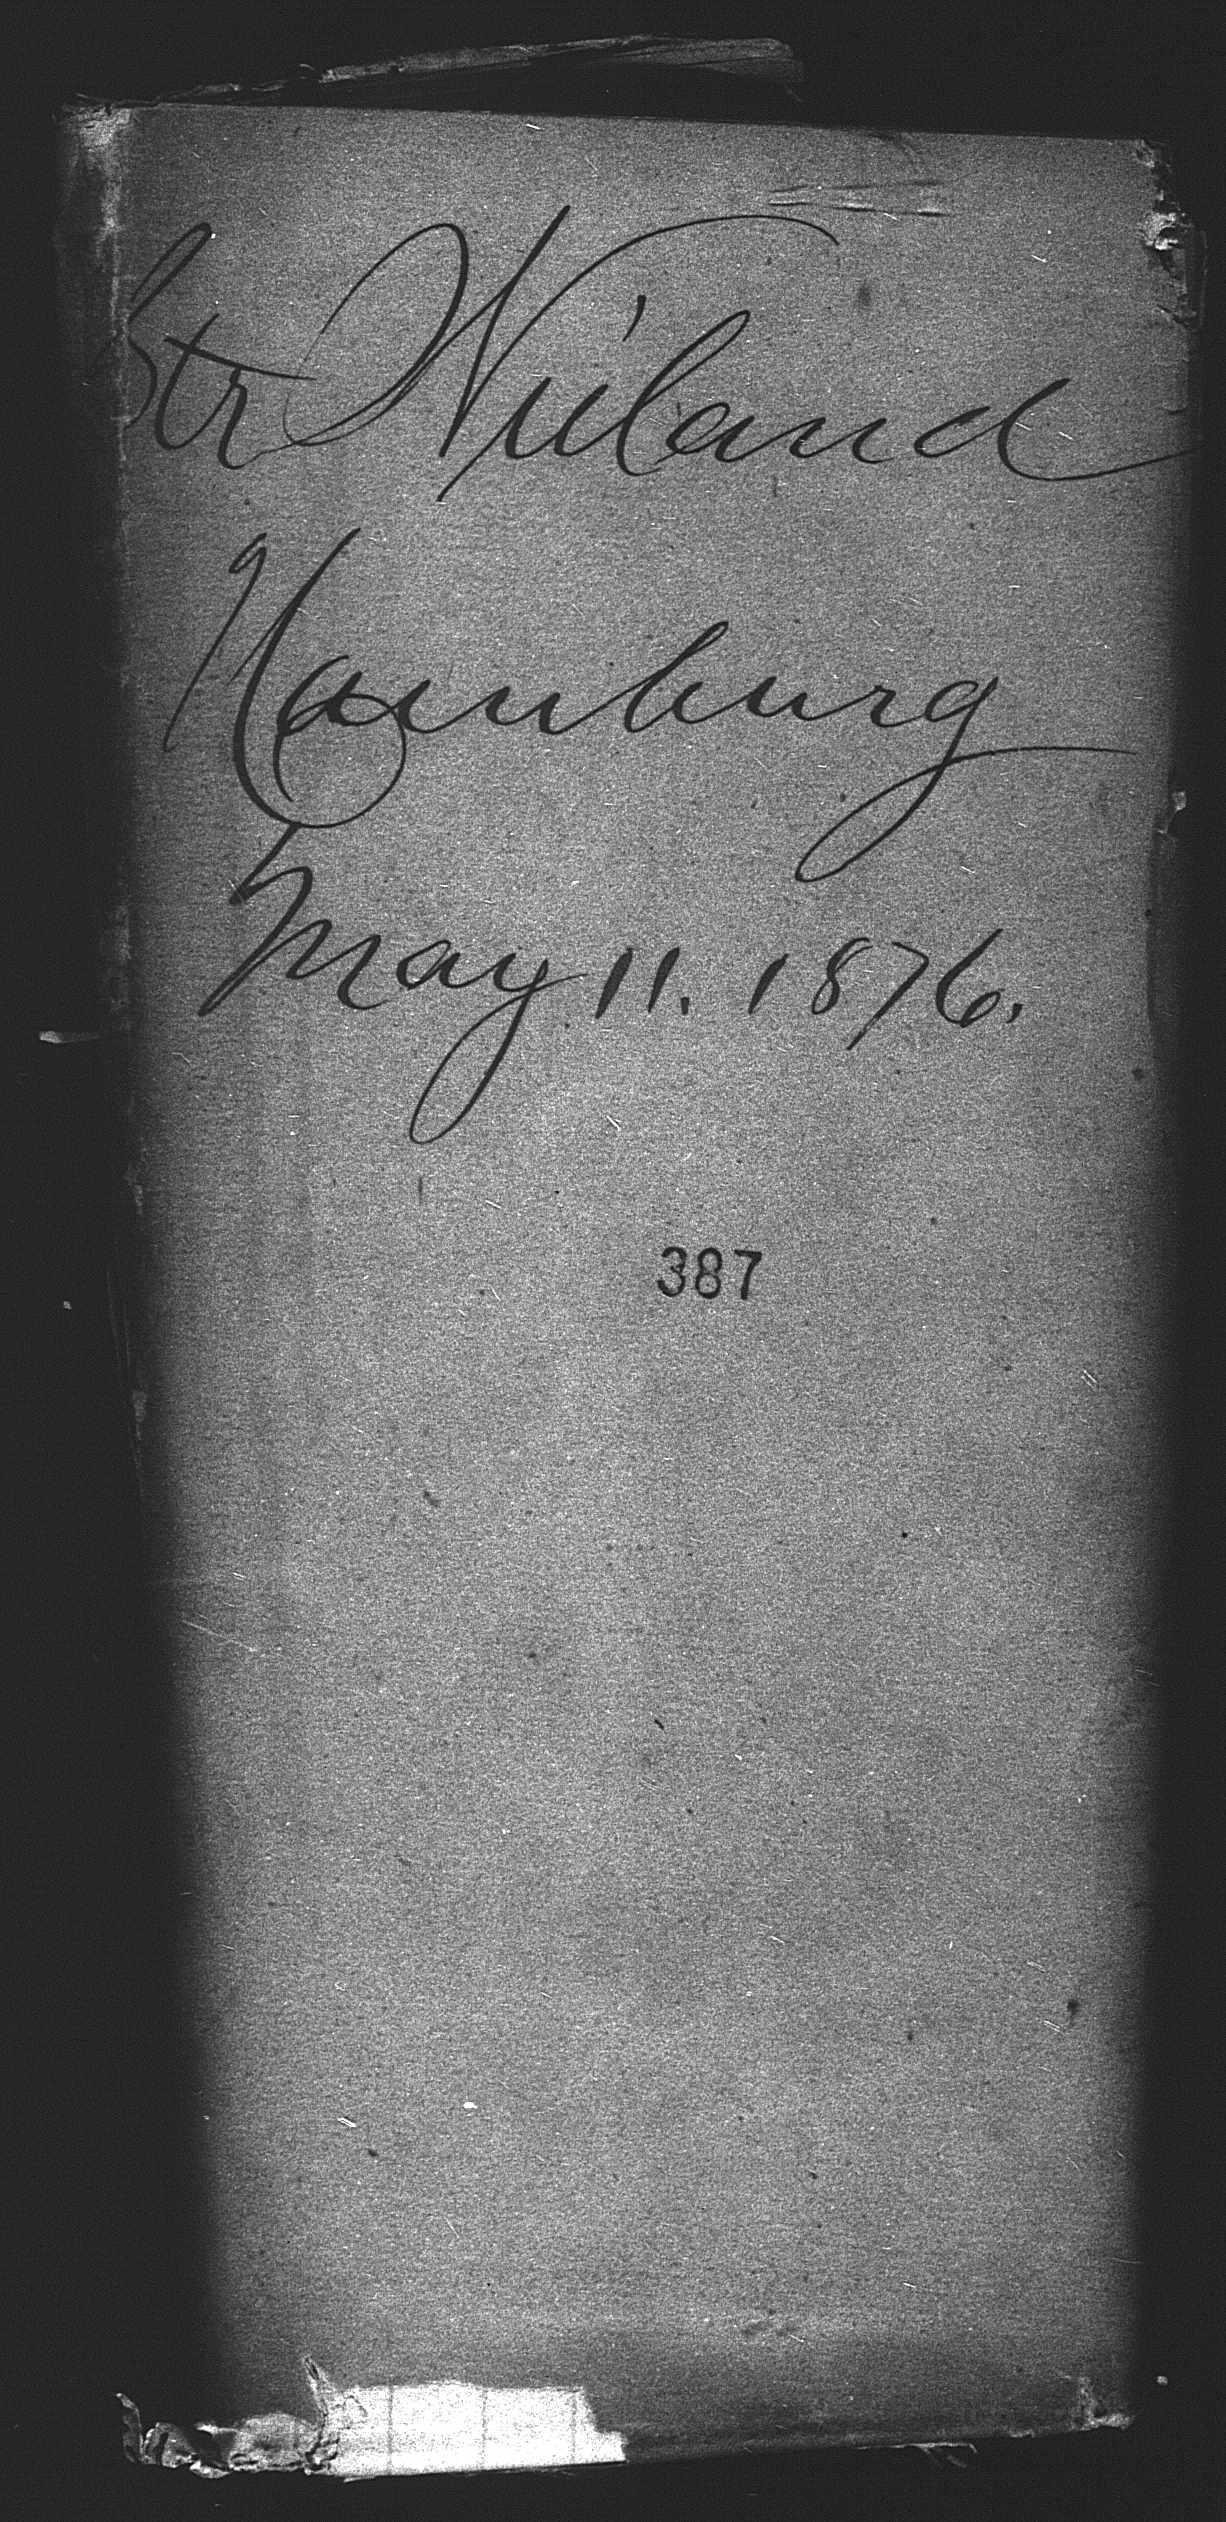 Str Wieland
Hamburg
May 11. 1876.
387